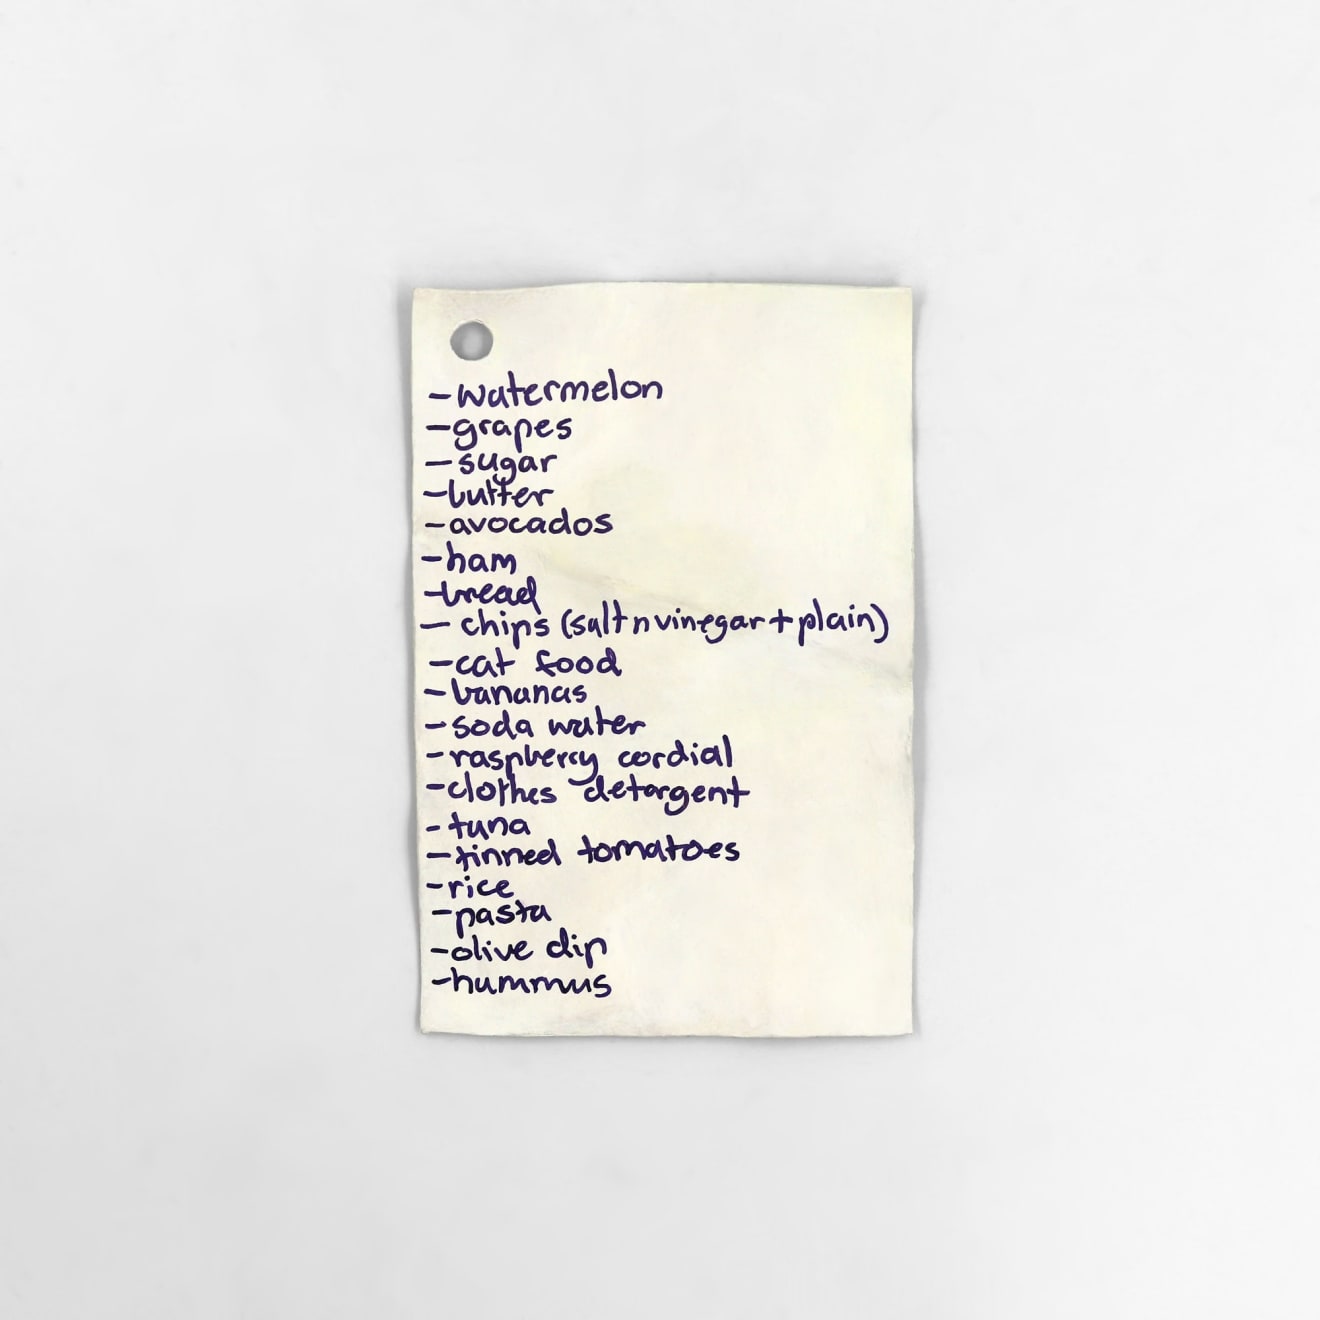 - watermelon
- grapes
- sugar
- butter
- avocados
- ham
- bread
- chips (salt n vinegar + plain)
- cat food
- bananas
- soda water
- raspberry cordial
- clothes detergent
- tuna
- tinned tomatoes
- rice
- pasta
- olive dip
- hummus